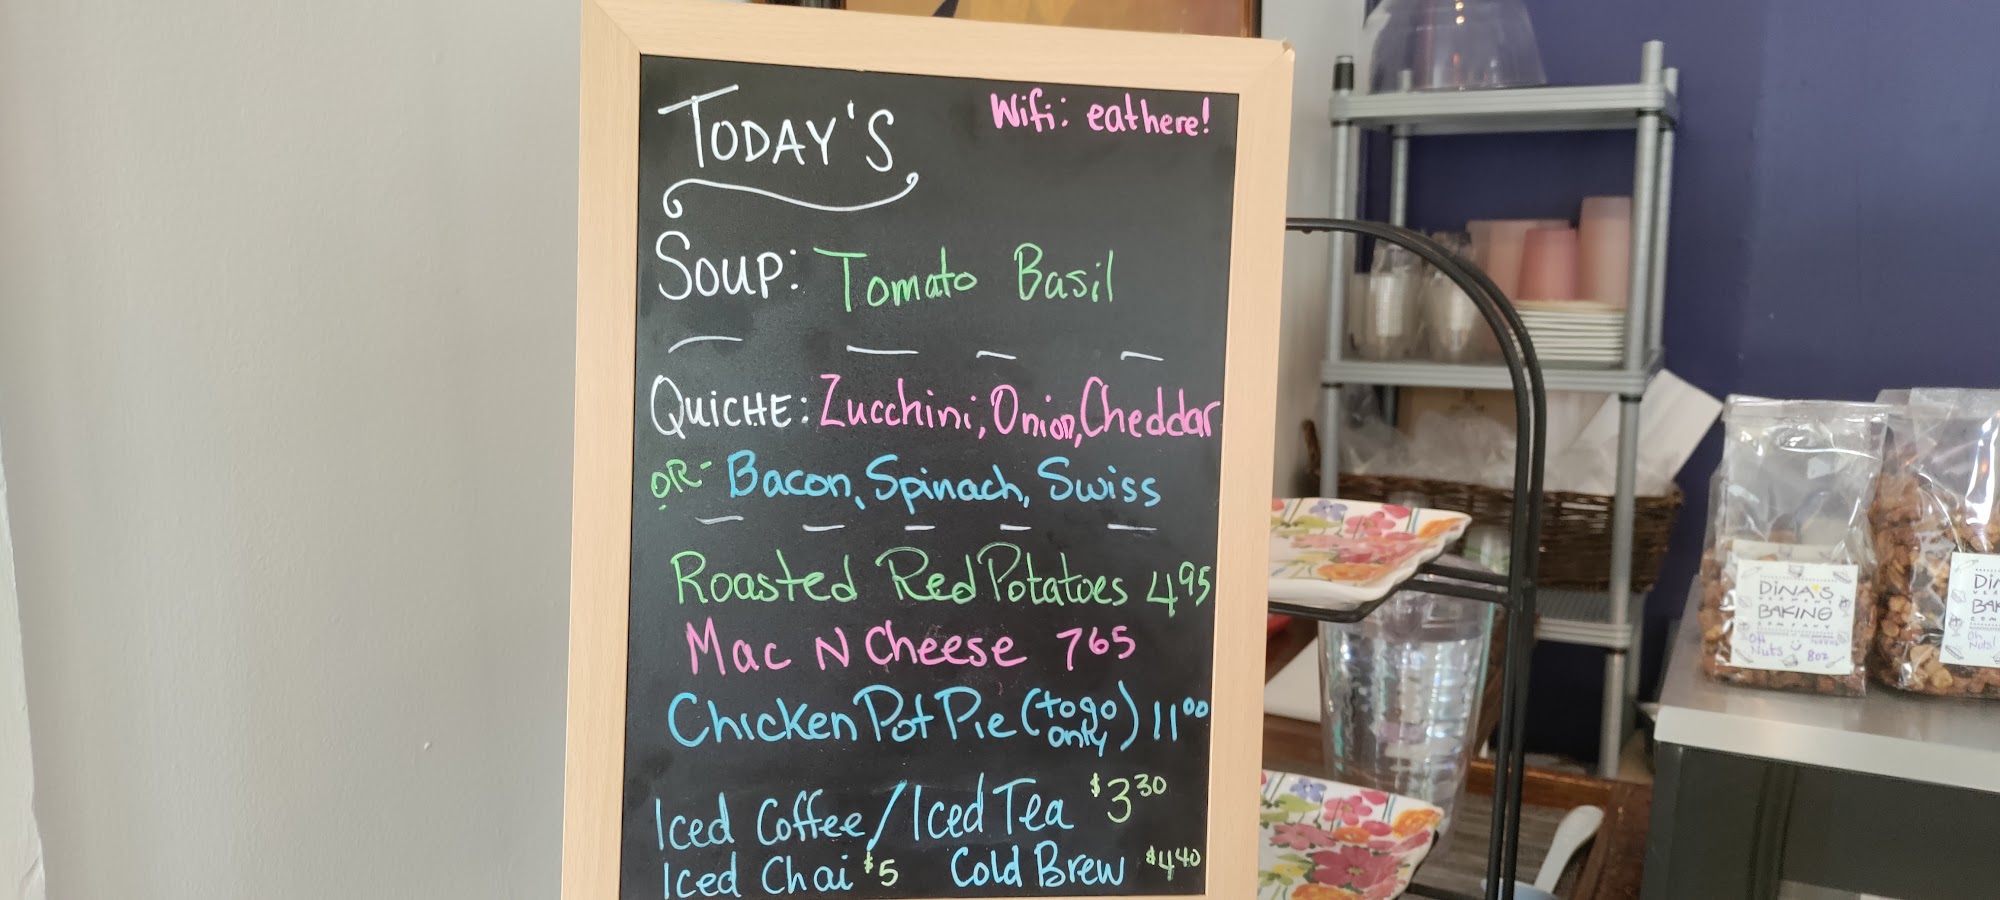 TODAY'S
Wifi: eathere!
SOUP: Tomato Basil
QUICHE: Zucchini, Onion, Cheddar
OR- Bacon, Spinach, Swiss
Roasted Red Potatoes 4 95
Mac N Cheese 7 65
Chicken Pot Pie (to go only) 11 00
Iced Coffee/Iced Tea $3 30
Iced Chai $5 Cold Brew $4 40
DINA'S
VERMONT
BAKING
COMPANY
Oh
Nuts
8oz
DIN
BAK
Oh
Nuts!